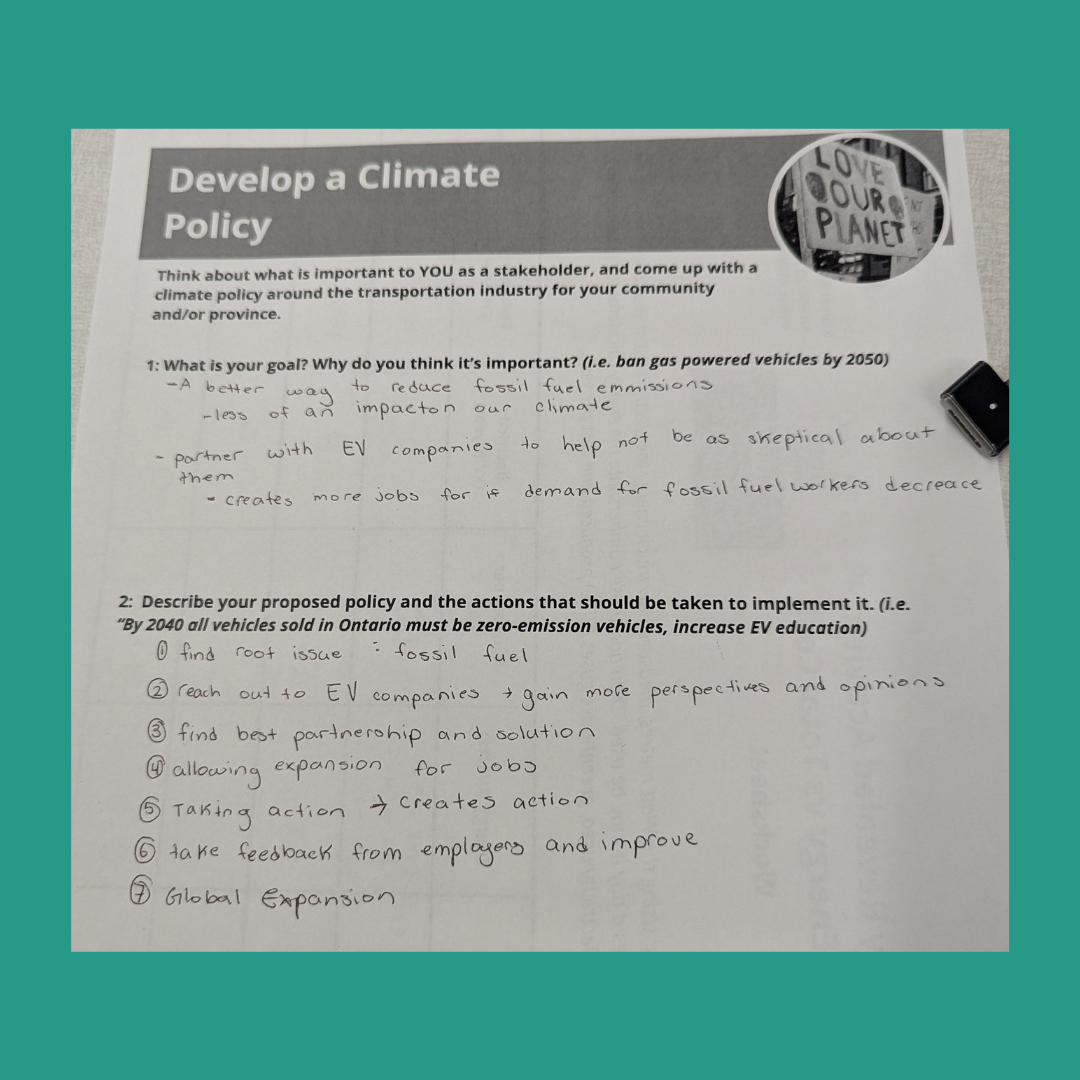 Develop a Climate
Policy
LOVE
OUR
PLANET
Think about what is important to YOU as a stakeholder, and come up with a
climate policy around the transportation industry for your community
and/or province.
1: What is your goal? Why do you think it's important? (i.e. ban gas powered vehicles by 2050)
-A better way to reduce fossil fuel emmissions
-less of an impacton our climate
- partner with EV companies to help not be as skeptical about
them
- creates more jobs for if demand for fossil fuel workers decreace
2: Describe your proposed policy and the actions that should be taken to implement it. (i.e.
"By 2040 all vehicles sold in Ontario must be zero-emission vehicles, increase EV education)
① find root issue : fossil fuel
② reach out to EV companies → gain more perspectives and opinions
③ find best partnership and solution
④ allowing expansion for jobs
⑤ Taking action → creates action
⑥ take feedback from employers and improve
⑦ Global Expansion